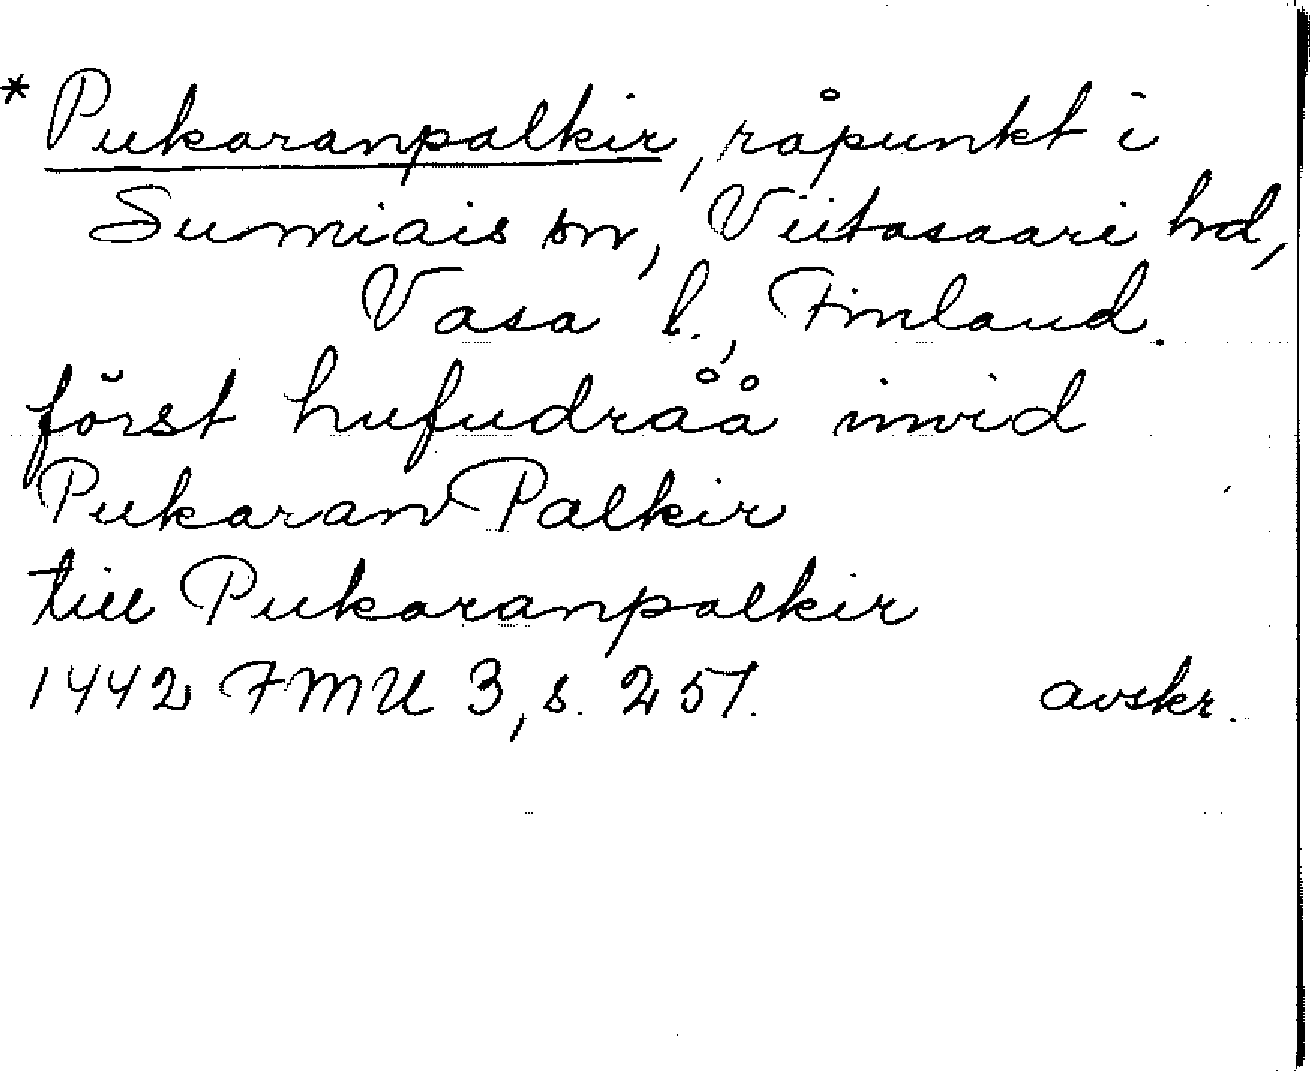 * Pukaranpalkir, råpunkt i
Sumiais sn, Viitasaari hd,
Vasa l., Finland.
först hufudraåå invid
Pukaran Palkir
till Pukaranpalkir
1442 FMU 3, s. 257. avskr.